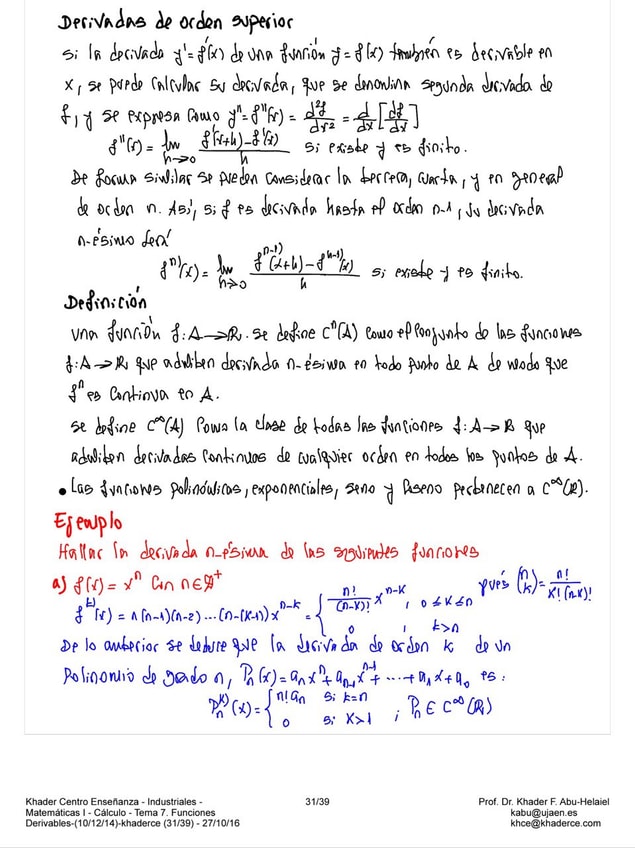 Derivadas de orden superior
Si la derivada y'=f'(x) de una función y=f(x) también es derivable en
x, se puede calcular su derivada, que se denomina segunda derivada de
f, y se expresa como y''=f''(x) = d²f/dx² = d/dx [df/dx]
f''(x) = lim h→0 (f'(x+h)-f'(x))/h si existe y es finito.
De forma similar se pueden considerar la tercera, cuarta, y en general
de orden n. Así, si f es derivada hasta el orden n-1, su derivada
n-ésimo será
fⁿ⁾(x) = lim h→0 (fⁿ⁻¹⁾(x+h) - fⁿ⁻¹⁾(x))/h si existe y es finito.
Definición
Una función f: A→R. Se define Cⁿ(A) como el conjunto de las funciones
f: A→R que admiten derivada n-ésima en todo punto de A de modo que
fⁿ es continua en A.
Se define C^∞(A) como la clase de todas las funciones f: A→R que
admiten derivadas continuas de cualquier orden en todos los puntos de A.
• Las funciones polinómicas, exponenciales, seno y coseno pertenecen a C^∞(R).
Ejemplo
Hallar la derivada n-ésima de las siguientes funciones
a) f(x) = xⁿ con n∈Z⁺
fᵏ⁾(x) = n(n-1)(n-2)...(n-(k-1))xⁿ⁻ᵏ = { n!/(n-k)! xⁿ⁻ᵏ , 0≤k≤n ; 0 , k>n pués (n k) = n!/(k!(n-k)!)
De lo anterior se deduce que la derivada de orden k de un
Polinomio de grado n, Pₙ(x) = aₙxⁿ + aₙ₋₁xⁿ⁻¹ + ... + a₁x + a₀ es:
Pₙᵏ⁾(x) = { n! aₙ si k=n ; 0 si k>1 ; Pₙ ∈ C^∞(R)
Khader Centro Enseñanza - Industriales -
Matemáticas I - Cálculo - Tema 7. Funciones
Derivables-(10/12/14)-khaderce (31/39) - 27/10/16
31/39
Prof. Dr. Khader F. Abu-Helaiel
kabu@ujaen.es
khce@khaderce.com